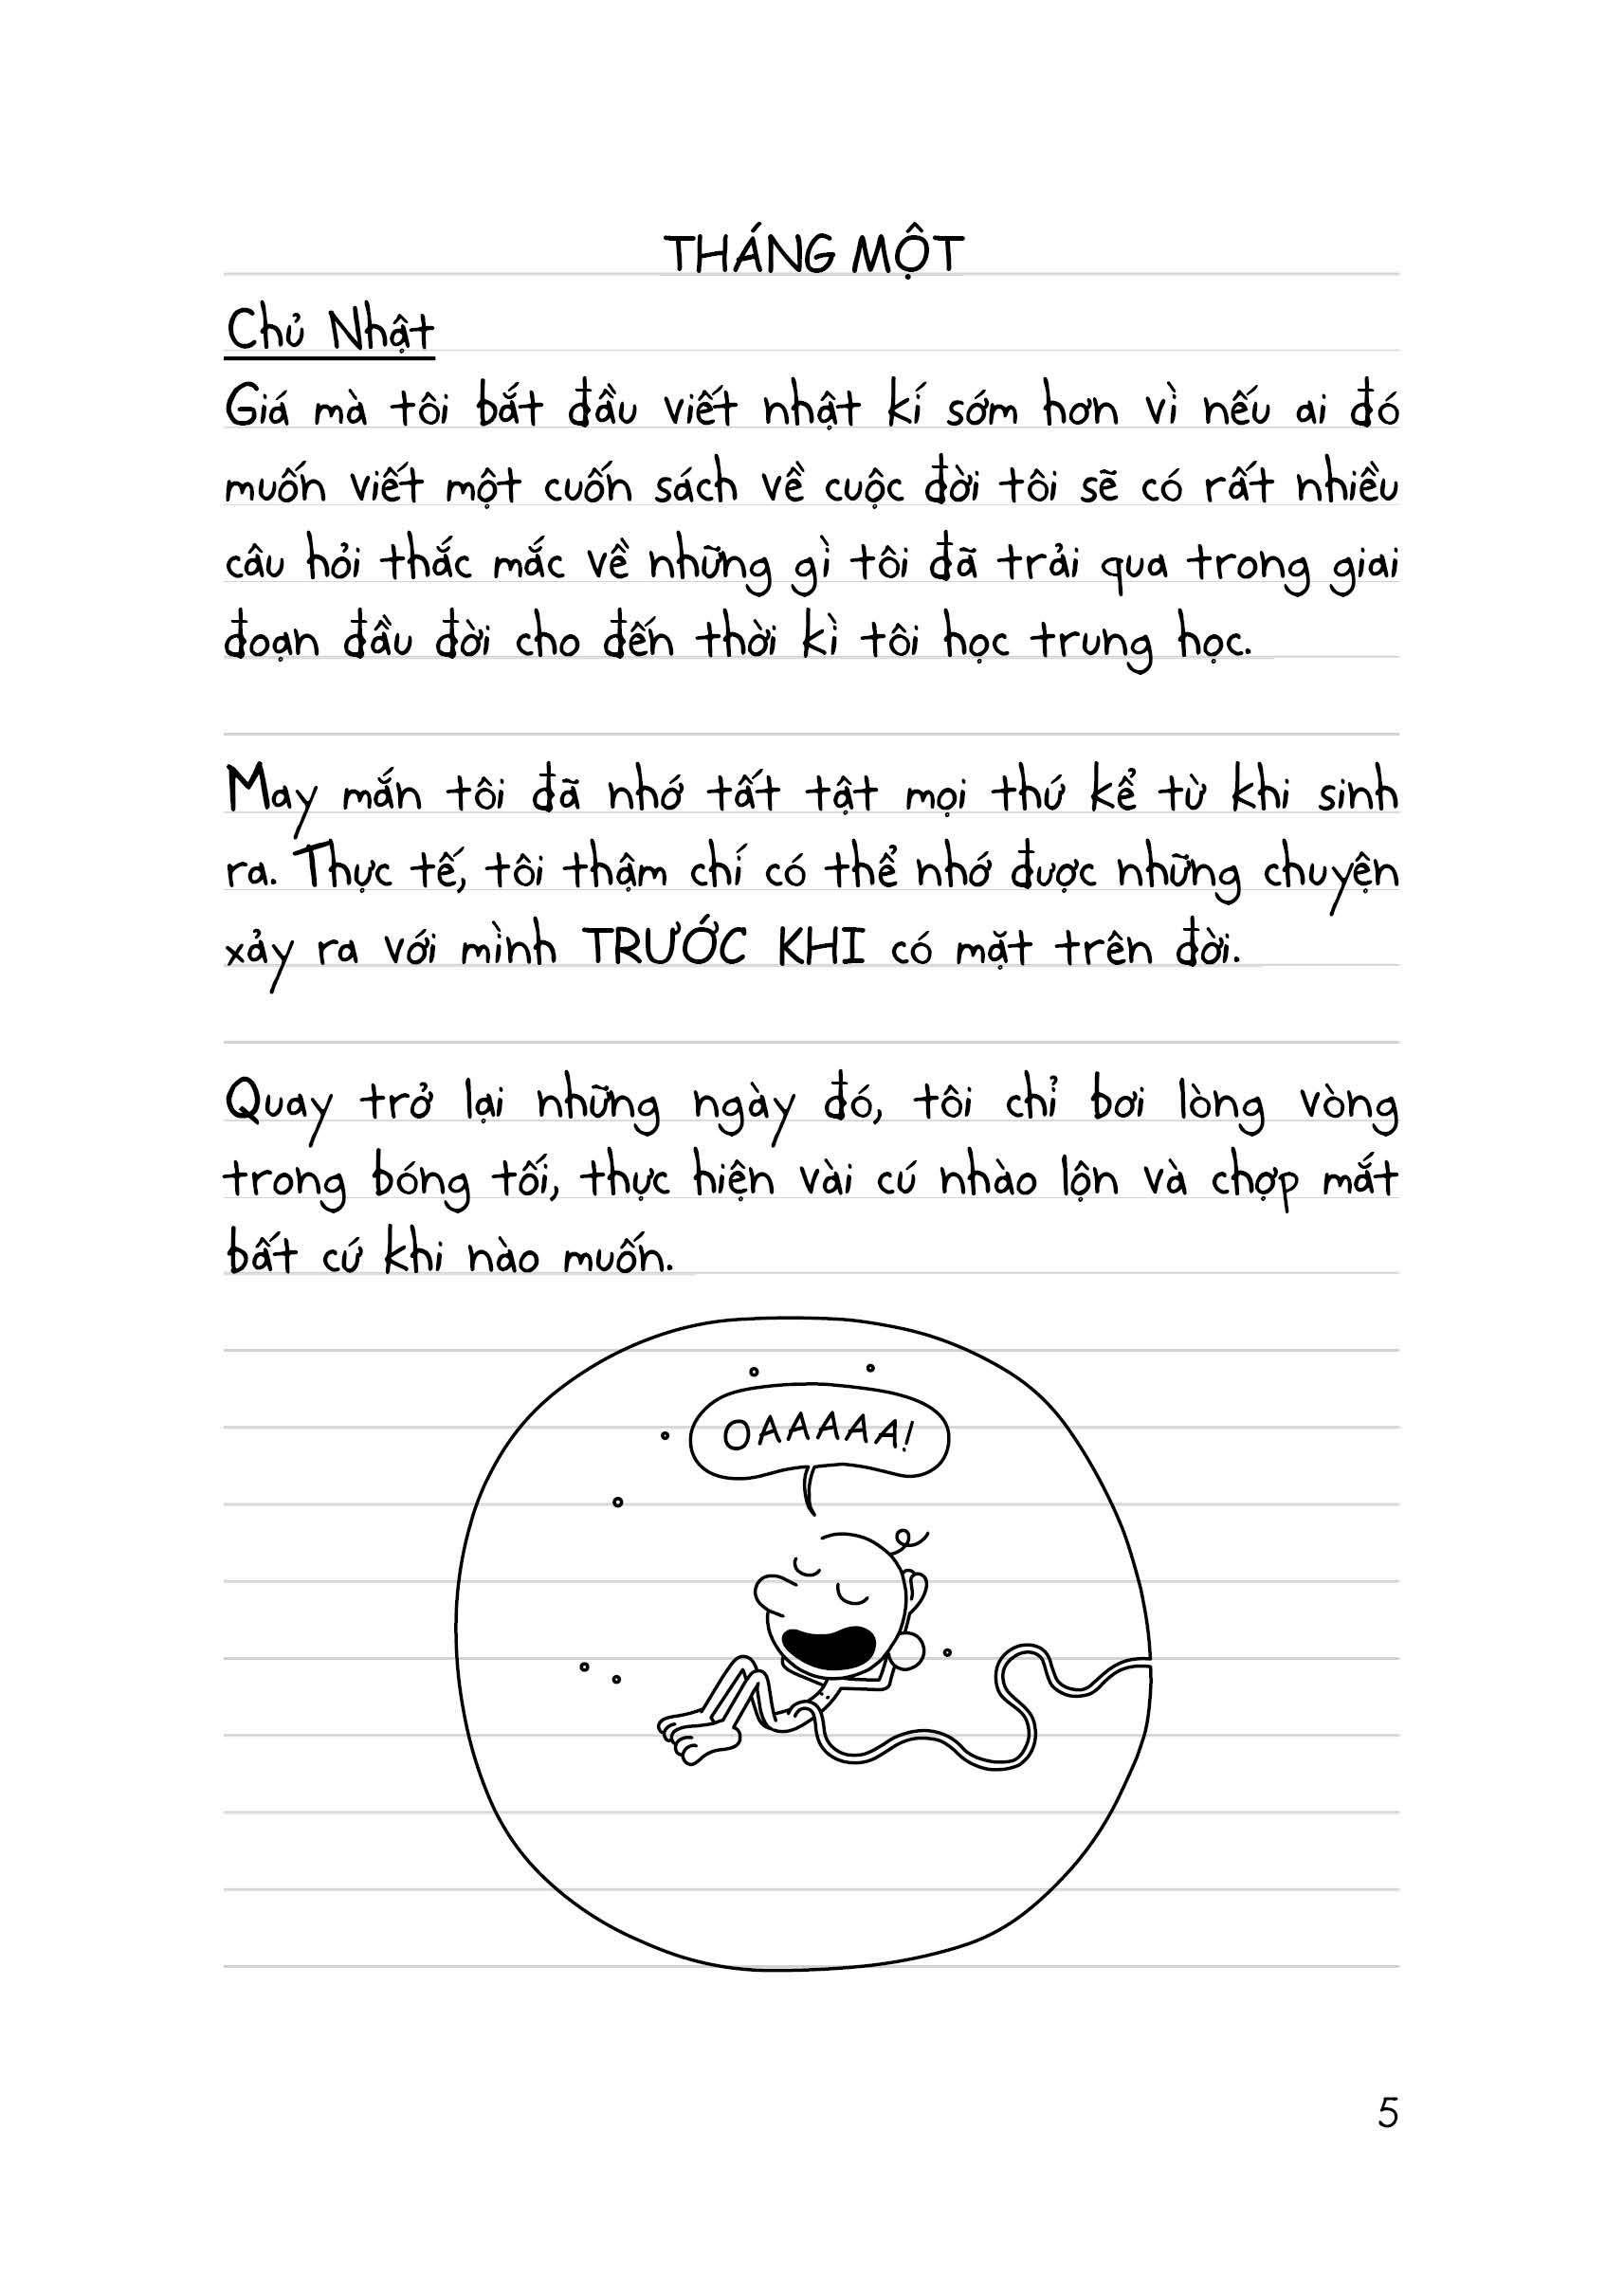 THÁNG MỘT
Chủ Nhật
Giá mà tôi bắt đầu viết nhật kí sớm hơn vì nếu ai đó
muốn viết một cuốn sách về cuộc đời tôi sẽ có rất nhiều
câu hỏi thắc mắc về những gì tôi đã trải qua trong giai
đoạn đầu đời cho đến thời kì tôi học trung học.
May mắn tôi đã nhớ tất tật mọi thứ kể từ khi sinh
ra. Thực tế, tôi thậm chí có thể nhớ được những chuyện
xảy ra với mình TRƯỚC KHI có mặt trên đời.
Quay trở lại những ngày đó, tôi chỉ bơi lòng vòng
trong bóng tối, thực hiện vài cú nhào lộn và chợp mắt
bất cứ khi nào muốn.
OAAAAA!
5